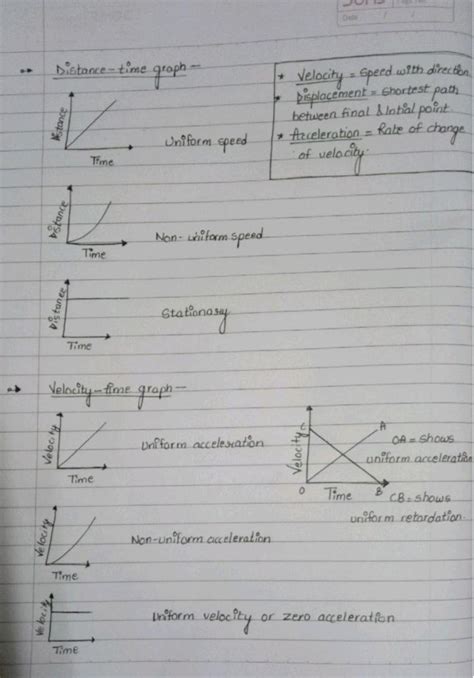 Date
Distance-time graph-
* Velocity = Speed with direction
* Displacement = Shortest path
between final & Intial point.
* Acceleration = Rate of change
of velocity.
Distance
Time
Uniform speed
Distance
Time
Non-uniform speed
Distance
Time
Stationary
Velocity-time graph-
Velocity
Time
Uniform acceleration
Velocity
C
A
O
Time
B
OA = shows
uniform acceleration
CB = shows
uniform retardation.
Velocity
Time
Non-uniform acceleration
Velocity
Time
Uniform velocity or zero acceleration